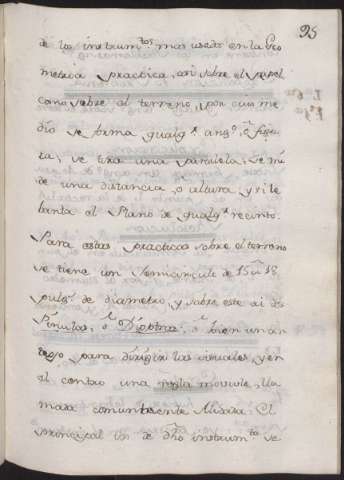 95
de los instrum.tos mas usados en la Geo
metria practica, asi sobre el papel
como sobre el terreno, por cuio me
dio se forma qualq.r ang.o, ó figu
ra; se tira una paralela; se mi
de una distancia, o altura, y se le
banta el Plano de qualq.r recinto.
Para estas practicas sobre el terreno
se tiene un Semicirculo de 15 ú 18
pulg.s de diametro, y sobre este ai dos
Pinulas, ó Dioptras, ó bien un an
teojo para dirigir las visuales, y en
el centro una regla movible, lla
mada comunmente Alidada. El
principal fin de dho instrum.to se